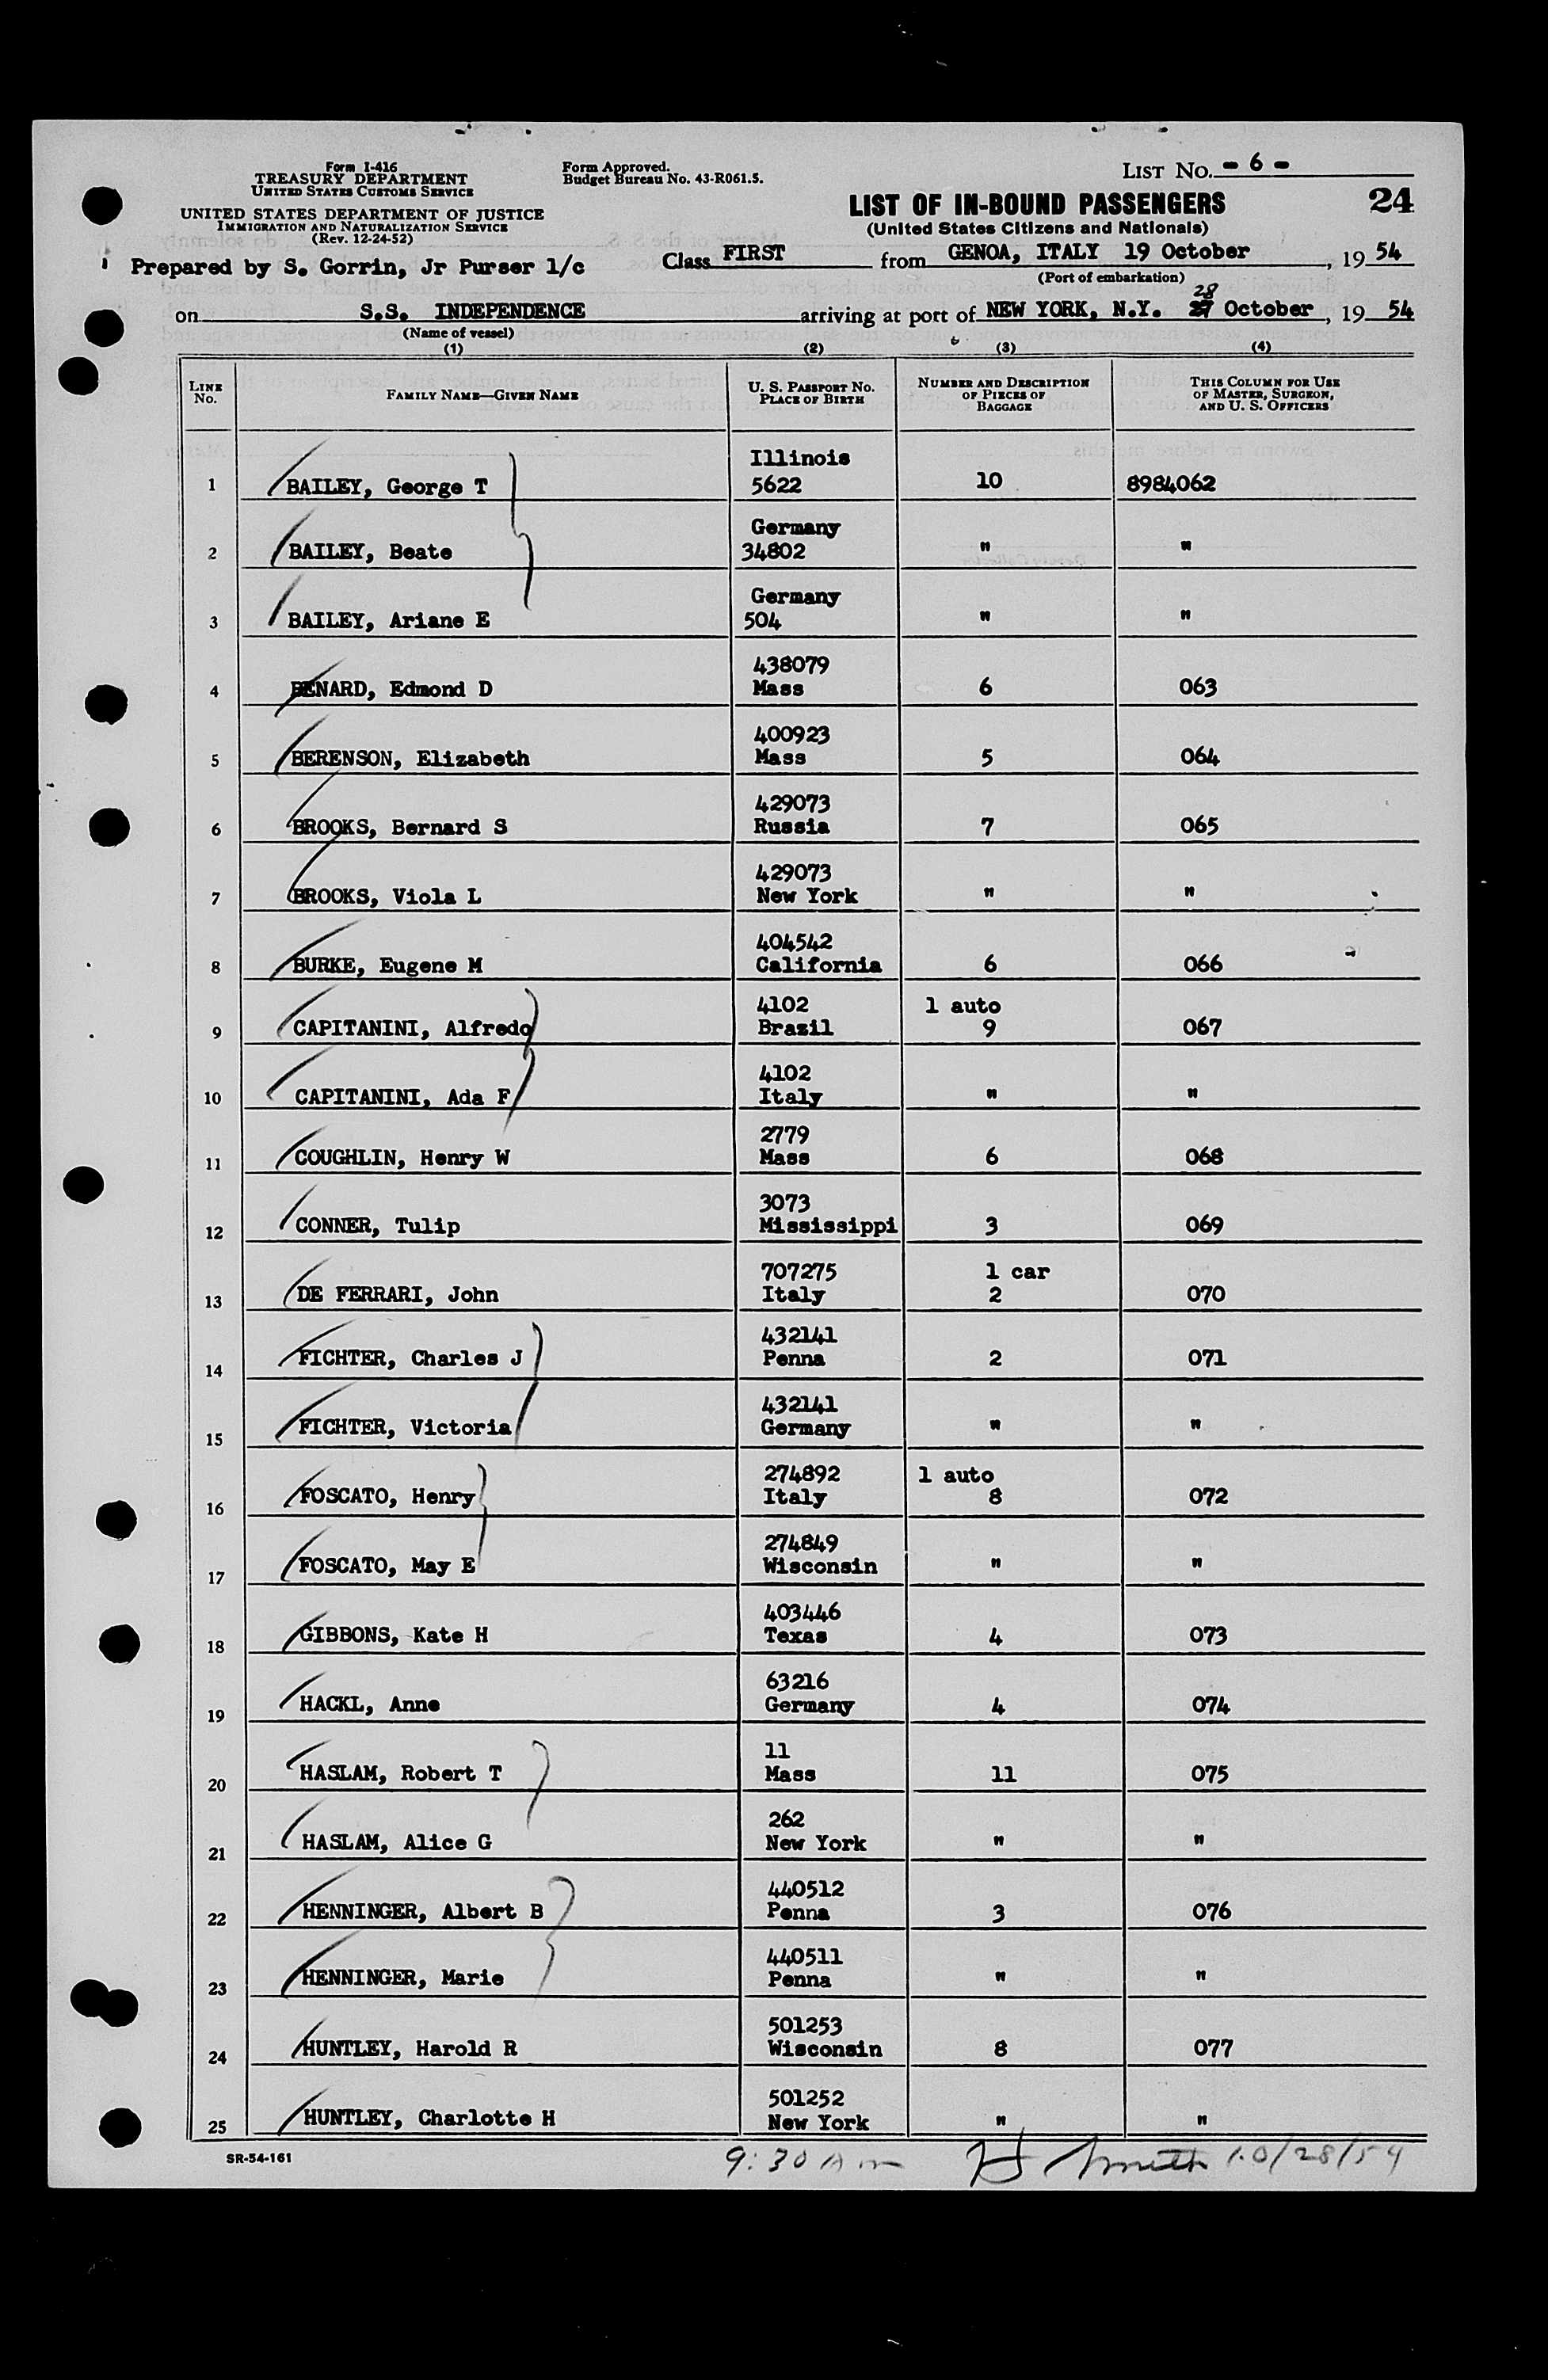 Form I-416
TREASURY DEPARTMENT
UNITED STATES CUSTOMS SERVICE
UNITED STATES DEPARTMENT OF JUSTICE
IMMIGRATION AND NATURALIZATION SERVICE
(Rev. 12-24-52)
Form Approved.
Budget Bureau No. 43-R061.5.
LIST NO. - 6 -
24
LIST OF IN-BOUND PASSENGERS
(United States Citizens and Nationals)
Prepared by S. Gorrin, Jr Purser 1/c Class FIRST from GENOA, ITALY 19 October, 19 54
(Port of embarkation)
28
on S.S. INDEPENDENCE arriving at port of NEW YORK, N.Y. 27 October, 19 54
(Name of vessel)
(1) (2) (3) (4)
LINE No. FAMILY NAME—GIVEN NAME U. S. PASSPORT NO. PLACE OF BIRTH NUMBER AND DESCRIPTION OF PIECES OF BAGGAGE THIS COLUMN FOR USE OF MASTER, SURGEON, AND U. S. OFFICERS
Illinois
1 BAILEY, George T 5622 10 8984062
Germany
2 BAILEY, Beate 34802 " "
Germany
3 BAILEY, Ariane E 504 " "
438079
4 BENARD, Edmond D Mass 6 063
400923
5 BERENSON, Elizabeth Mass 5 064
429073
6 BROOKS, Bernard S Russia 7 065
429073
7 BROOKS, Viola L New York " "
404542
8 BURKE, Eugene M California 6 066
4102 1 auto
9 CAPITANINI, Alfredo Brazil 9 067
4102
10 CAPITANINI, Ada F Italy " "
2779
11 COUGHLIN, Henry W Mass 6 068
3073
12 CONNER, Tulip Mississippi 3 069
707275 1 car
13 DE FERRARI, John Italy 2 070
432141
14 FICHTER, Charles J Penna 2 071
432141
15 FICHTER, Victoria Germany " "
274892 1 auto
16 FOSCATO, Henry Italy 8 072
274849
17 FOSCATO, May E Wisconsin " "
403446
18 GIBBONS, Kate H Texas 4 073
63216
19 HACKL, Anne Germany 4 074
11
20 HASLAM, Robert T Mass 11 075
262
21 HASLAM, Alice G New York " "
440512
22 HENNINGER, Albert B Penna 3 076
440511
23 HENNINGER, Marie Penna " "
501253
24 HUNTLEY, Harold R Wisconsin 8 077
501252
25 HUNTLEY, Charlotte H New York " "
SR-54-161 9:30 Am H Smith 10/28/54